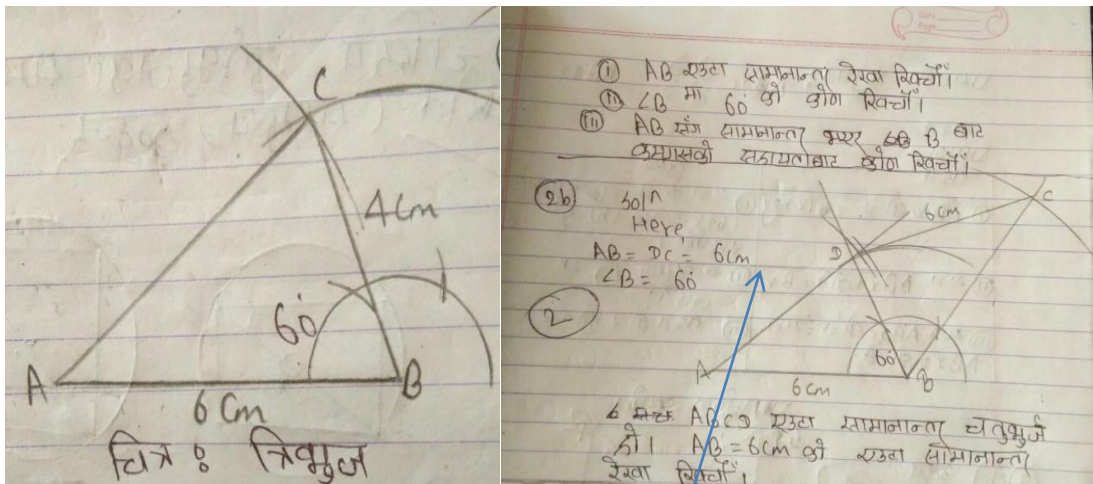 C
4cm
60°
A
B
6cm
चित्र : त्रिभुज
Date
Page
(i) AB एउटा सामानान्तर रेखा खिचौँ।
(ii) ∠B मा 60° को कोण खिचौँ।
(iii) AB सँग सामानान्तर भएर B बाट
कम्पासको सहायताबाट कोण खिचौँ।
(2b) Soln
Here,
AB = DC = 6cm
∠B = 60°
2
C
6cm
D
60°
A
B
6cm
ABCD एउटा सामानान्तर चतुर्भुज
हो। AB = 6cm को एउटा सामानान्तर
रेखा खिचौँ।